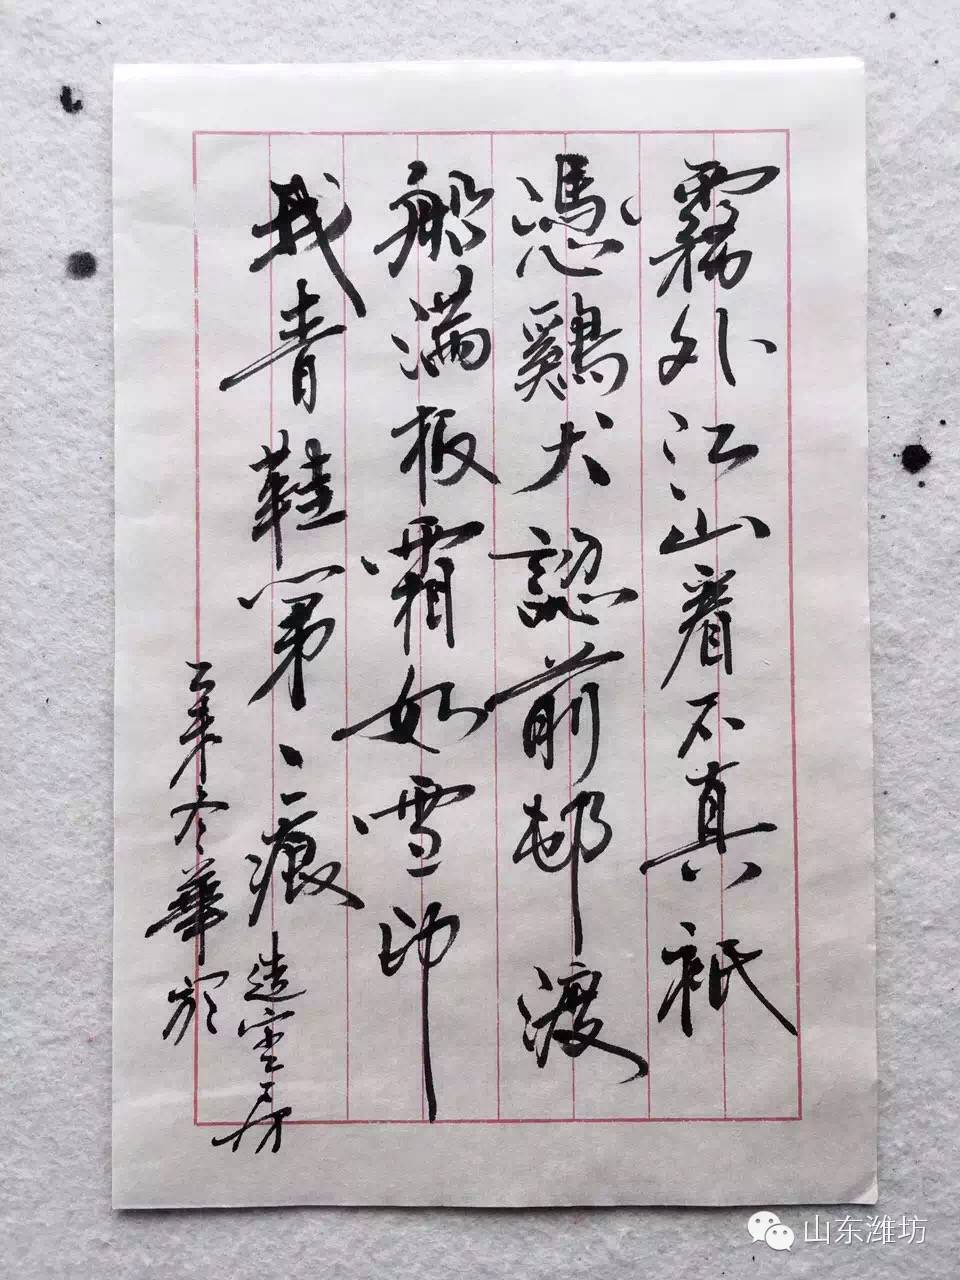 霧外江山看不真祇
憑鷄犬認前邨渡
船滿板霜如雪印
我青鞵第一痕造室房
年冬華於
山东潍坊